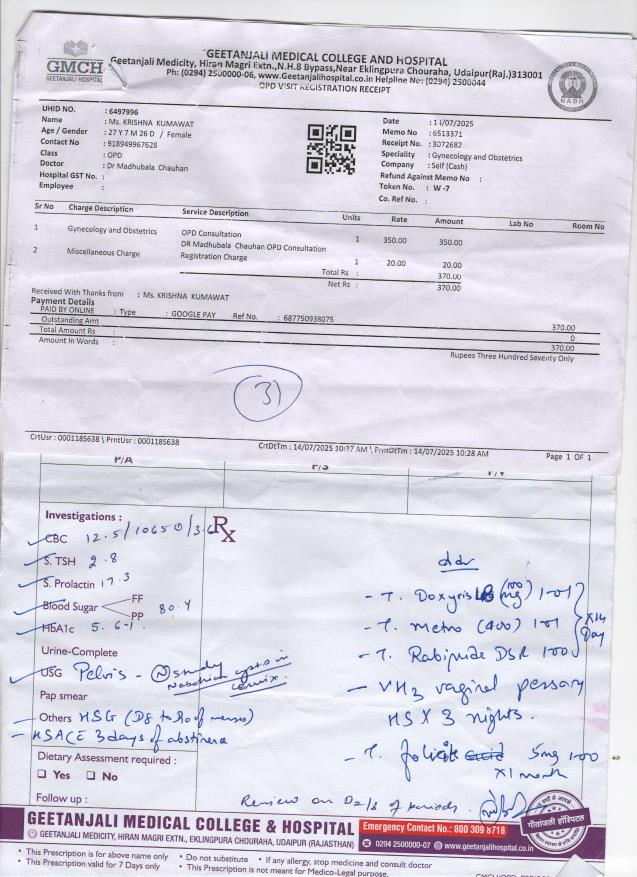 GEETANJALI MEDICAL COLLEGE AND HOSPITAL
Geetanjali Medicity, Hiran Magri Extn.,N.H.8 Bypass,Near Eklingpura Chouraha, Udaipur(Raj.)313001
Ph: (0294) 2500000-06, www.Geetanjalihospital.co.in Helpline No: (0294) 2500044
OPD VISIT REGISTRATION RECEIPT
GMCH
GEETANJALI HOSPITAL
NABH
UHID NO. : 6497996
Name : Ms. KRISHNA KUMAWAT
Age / Gender : 27 Y 7 M 26 D / Female
Contact No : 918949967628
Class : OPD
Doctor : Dr Madhubala Chauhan
Hospital GST No. :
Employee :
Date : 14/07/2025
Memo No : 6513371
Receipt No. : 3072682
Speciality : Gynecology and Obstetrics
Company : Self (Cash)
Refund Against Memo No :
Token No. : W -7
Co. Ref No. :
Sr No Charge Description Service Description Units Rate Amount Lab No Room No
1 Gynecology and Obstetrics OPD Consultation 1 350.00 350.00
DR Madhubala Chauhan OPD Consultation
2 Miscellaneous Charge Registration Charge 1 20.00 20.00
Total Rs : 370.00
Net Rs : 370.00
Received With Thanks from : Ms. KRISHNA KUMAWAT
Payment Details
PAID BY ONLINE : Type : GOOGLE PAY Ref No. : 687750938075 370.00
Outstanding Amt 0
Total Amount Rs : 370.00
Amount In Words : Rupees Three Hundred Seventy Only
3)
CrtUsr : 0001185638 \ PrntUsr : 0001185638 CrtDtTm : 14/07/2025 10:27 AM \ PrntDtTm : 14/07/2025 10:28 AM Page 1 OF 1
P/A P/S P/V
Investigations :
CBC 12.5/10650/3.6
S. TSH 2.8
S. Prolactin 17.3
Blood Sugar FF
PP 80.4
HbA1c 5.6
Urine-Complete
USG Pelvis - N study
Nabothian cysts in
cervix.
Pap smear
Others HSG (D8 to 10 of menses)
HSA CE 3 days of abstinence
Dietary Assessment required :
Yes No
Follow up :
Rx
Adv
- T. Doxy (100 mg) 1-01
- T. Metro (400) 1-01
x14 Day
- T. Rabipride DSR 100
- VH3 vaginal pessary
HS X 3 nights.
- T. folic acid 5mg 1-00
X1 month
Review on D2/3 of periods.
GEETANJALI MEDICAL COLLEGE & HOSPITAL
GEETANJALI MEDICITY, HIRAN MAGRI EXTN., EKLINGPURA CHOURAHA, UDAIPUR (RAJASTHAN)
Emergency Contact No.: 800 309 8718
0294 2500000-07 www.geetanjalihospital.co.in
गीतांजली हॉस्पिटल
• This Prescription is for above name only • Do not substitute • If any allergy, stop medicine and consult doctor
• This Prescription valid for 7 Days only • This Prescription is not meant for Medico-Legal purpose.